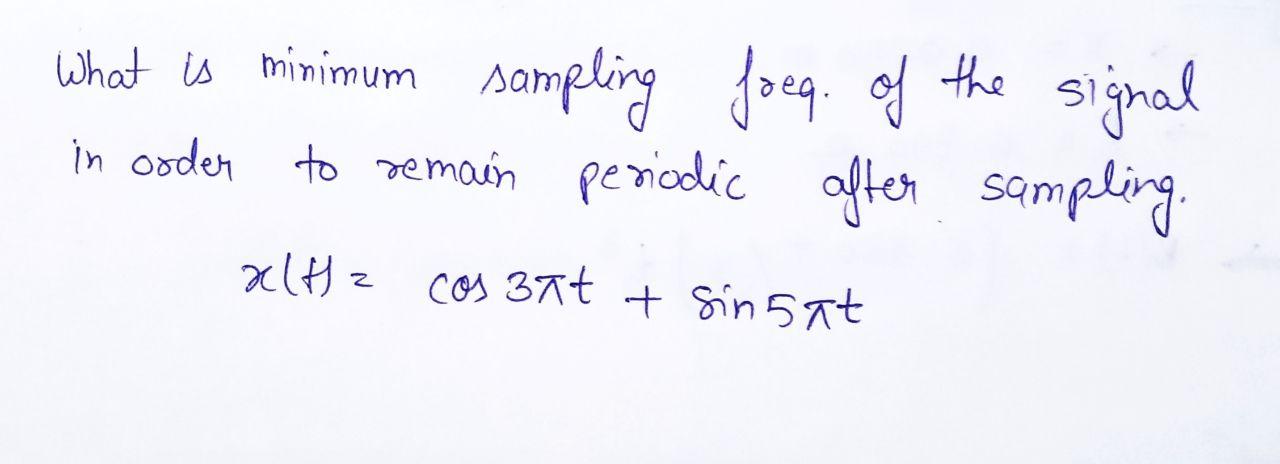 What is minimum sampling freq. of the signal
in order to remain periodic after sampling.
x(t) = cos 3πt + sin 5πt